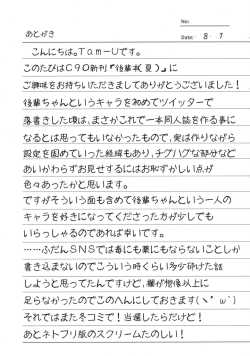 No:
Date 8・7
あとがき
こんにちは。Tam-Uです。
このたびはC90新刊『後輩本(夏)』に
ご興味をお持ちいただきましてありがとうございました！
後輩ちゃんというキャラを初めてツイッターで
落書きした頃は、まさかこれで一本同人誌を作る事に
なるとは思ってもいなかったもので、実は作りながら
設定を固めていった経緯もあり、チグハグな部分など
あいかわらずお見せするにはお恥ずかしい点が
色々あったかと思います。
ですがそういう面も含めて後輩ちゃんという一人の
キャラを好きになってくださった方が少しでも
いらっしゃるのであれば幸いです。
……ふだんSNSでは毒にも薬にもならないことしか
書き込まないのでこういう時くらい多少砕けた話
しようと思ってたんですけど、欄が想像以上に
足らなかったのでこのへんにしておきます(ヽ´ω`)
それではまた冬コミで！当選したらだけど！
あとネトフリ版のスクリームたのしい！